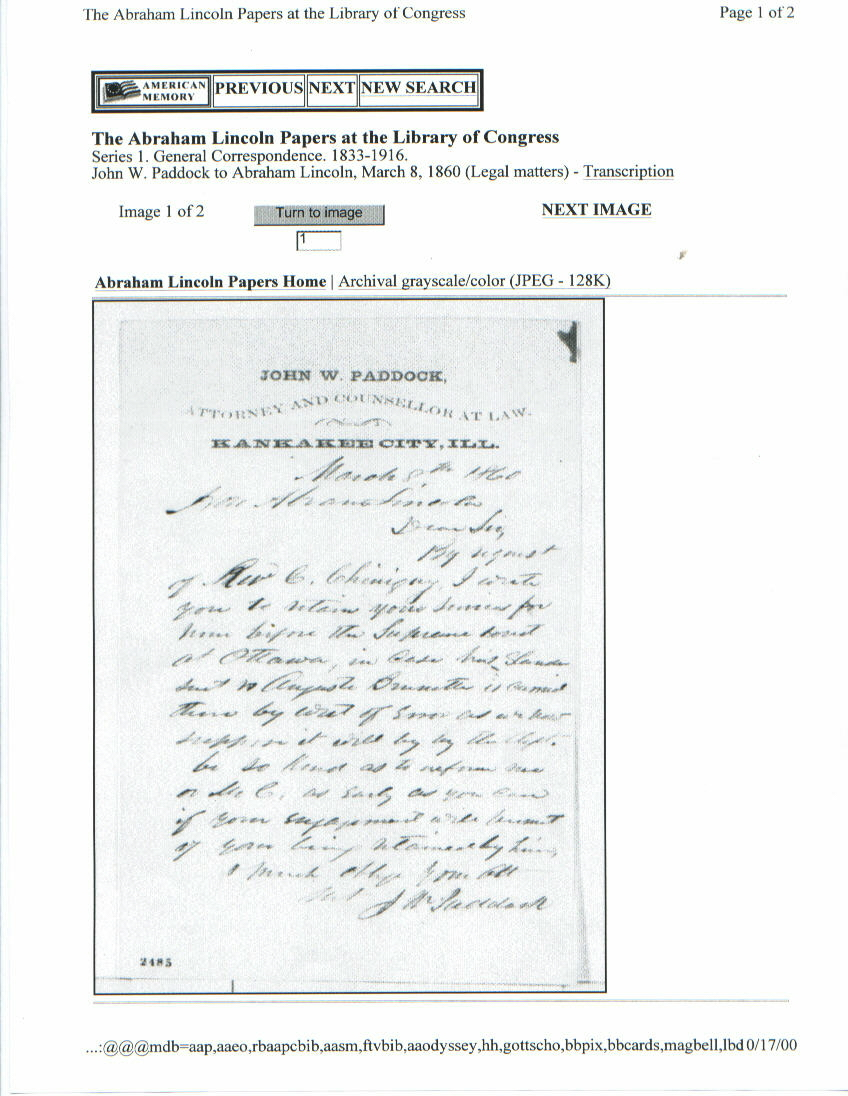 The Abraham Lincoln Papers at the Library of Congress Page 1 of 2
AMERICAN MEMORY PREVIOUS NEXT NEW SEARCH
The Abraham Lincoln Papers at the Library of Congress
Series 1. General Correspondence. 1833-1916.
John W. Paddock to Abraham Lincoln, March 8, 1860 (Legal matters) - Transcription
Image 1 of 2 Turn to image NEXT IMAGE
1
Abraham Lincoln Papers Home | Archival grayscale/color (JPEG - 128K)
JOHN W. PADDOCK,
ATTORNEY AND COUNSELLOR AT LAW.
KANKAKEE CITY, ILL.
March 8th 1860
Hon Abram Lincoln
Dear Sir,
By request
of Rev C. Chiniquy, I write
you to retain your services for
him before the Supreme Court
at Ottawa, in case
suit vs Auguste is carried
there by writ of Error as we now
suppose it will by the Deft.
be so kind as to inform me
or Mr C. as early as you can
if your engagements will permit
of your being retained by him,
& much oblige Your
J W Paddock
2485
...:@@@mdb=aap,aaeo,rbaapcbib,aasm,ftvbib,aaodyssey,hh,gottscho,bbpix,bbcards,magbell,lbd 0/17/00